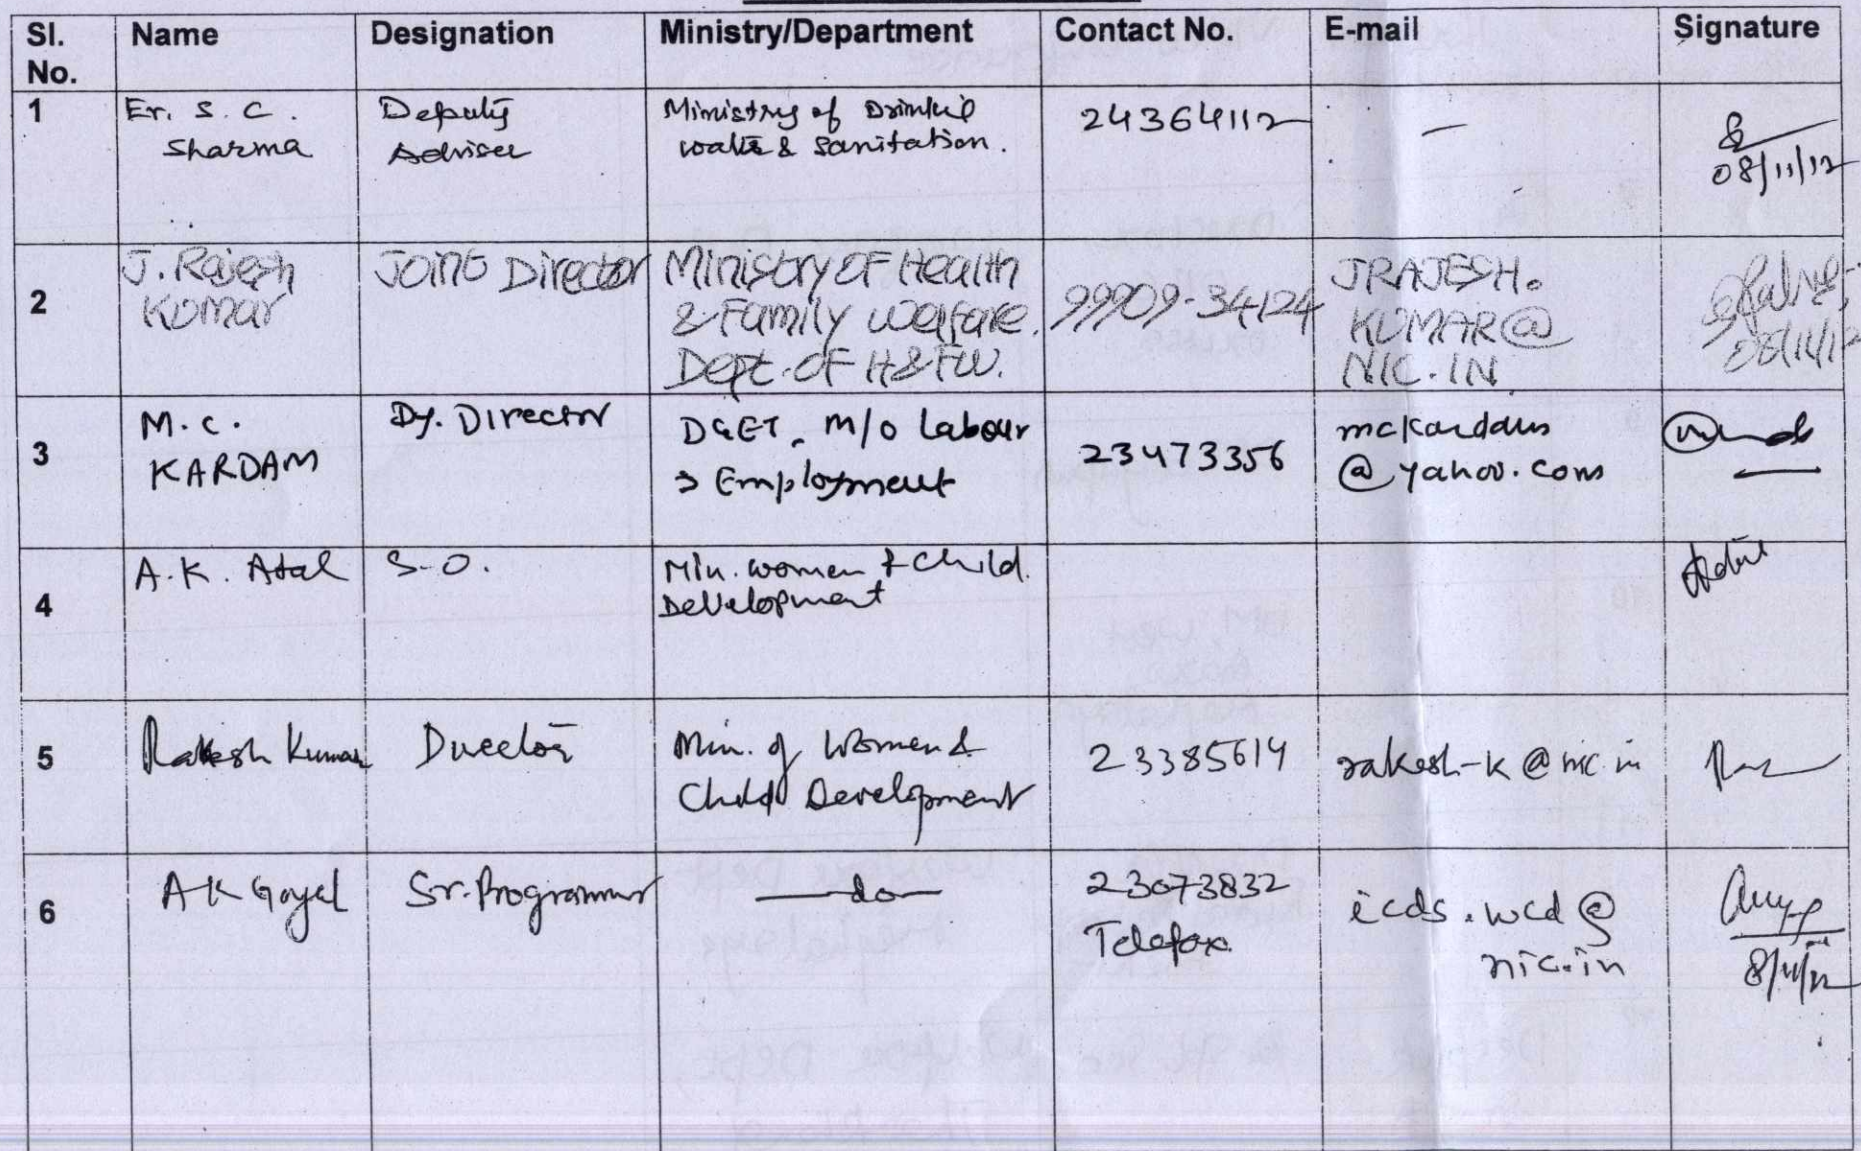 Sl. No. Name Designation Ministry/Department Contact No. E-mail Signature
1 Er. S. C. Sharma Deputy Adviser Ministry of Drinking water & Sanitation. 24364112 — 08/11/12
2 J. Rajesh Kumar Joint Director Ministry of Health & Family Welfare. Dept. of H & FW. 99909-34124 JRAJESH.KUMAR@NIC.IN 08/11/12
3 M.C. KARDAM Dy. Director DGET, M/O Labour & Employment 23473356 mckardam@yahoo.com
4 A.K. Atal S.O. Min. women & Child. Development
5 Rakesh Kumar Director Min. of Women & Child Development 23385614 rakesh-k@nic.in
6 A K Goyal Sr. Programmer —do— 23073832 Telefax. icds.wcd@nic.in 8/11/12